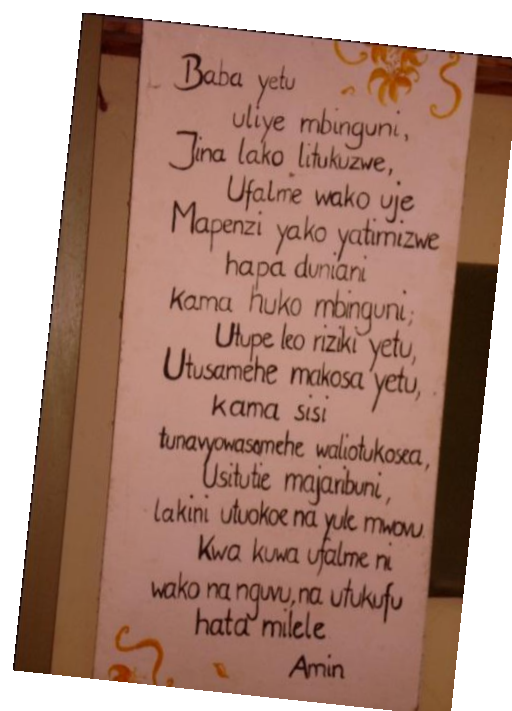 Baba yetu
uliye mbinguni,
Jina lako litukuzwe,
Ufalme wako uje
Mapenzi yako yatimizwe
hapa duniani
kama huko mbinguni;
Utupe leo riziki yetu,
Utusamehe makosa yetu,
kama sisi
tunavyowasamehe waliotukosea,
Usitutie majaribuni,
lakini utuokoe na yule mwovu.
Kwa kuwa ufalme ni
wako na nguvu, na utukufu
hata milele
Amin